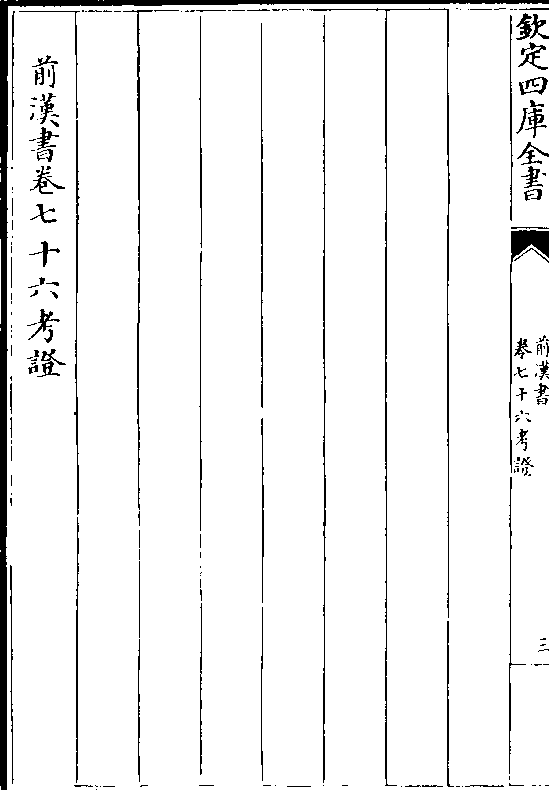 欽定四庫全書
前漢書
卷七十六考證
三
前漢書卷七十六考證